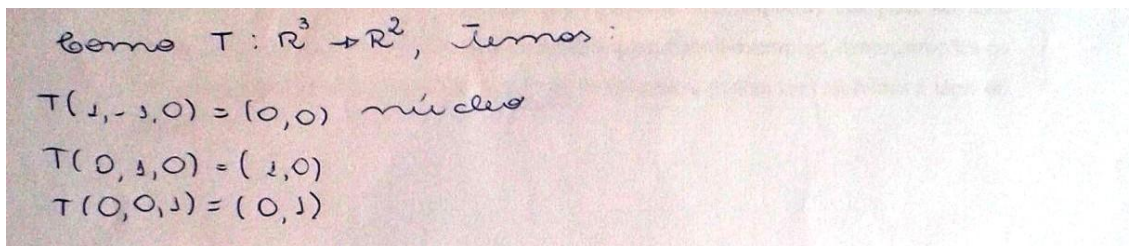 Como T : R³ → R², Temos :
T(1,-1,0) = (0,0) núcleo
T(0,1,0) = (1,0)
T(0,0,1) = (0,1)